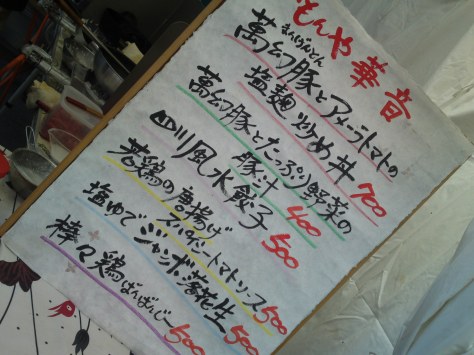 もんや華音
まんげんとん
萬幻豚とアメーラトマトの
塩麹炒め丼 700
萬幻豚とたっぷり野菜の
豚汁 400
四川風水餃子 500
若鶏の唐揚げ
スパイシートマトソース 500
塩ゆでジャンボ落花生 500
棒々鶏 ばんばんじー 500